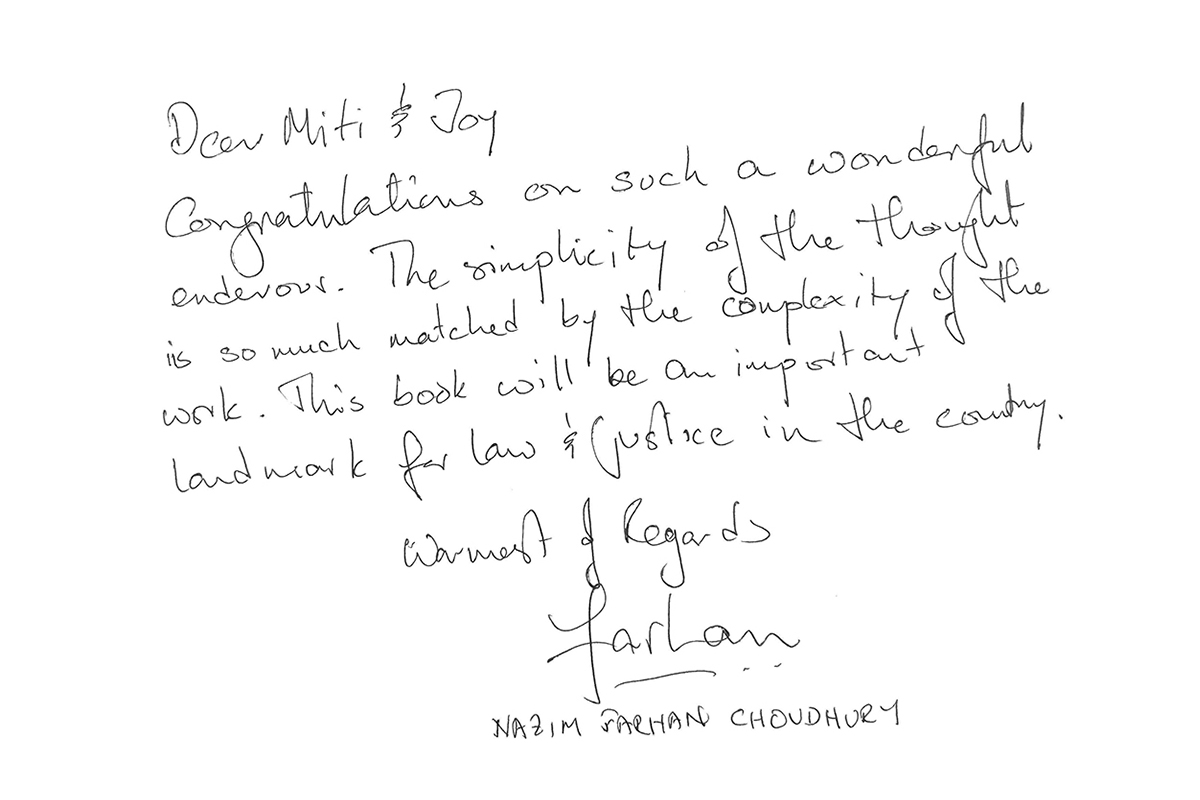 Dear Miti & Joy
Congratulations on such a wonderful
endevour. The simplicity of the thought
is so much matched by the complexity of the
work. This book will be an important
landmark for law & justice in the country.
Warmest of Regards
Farhan
NAZIM FARHAN CHOUDHURY